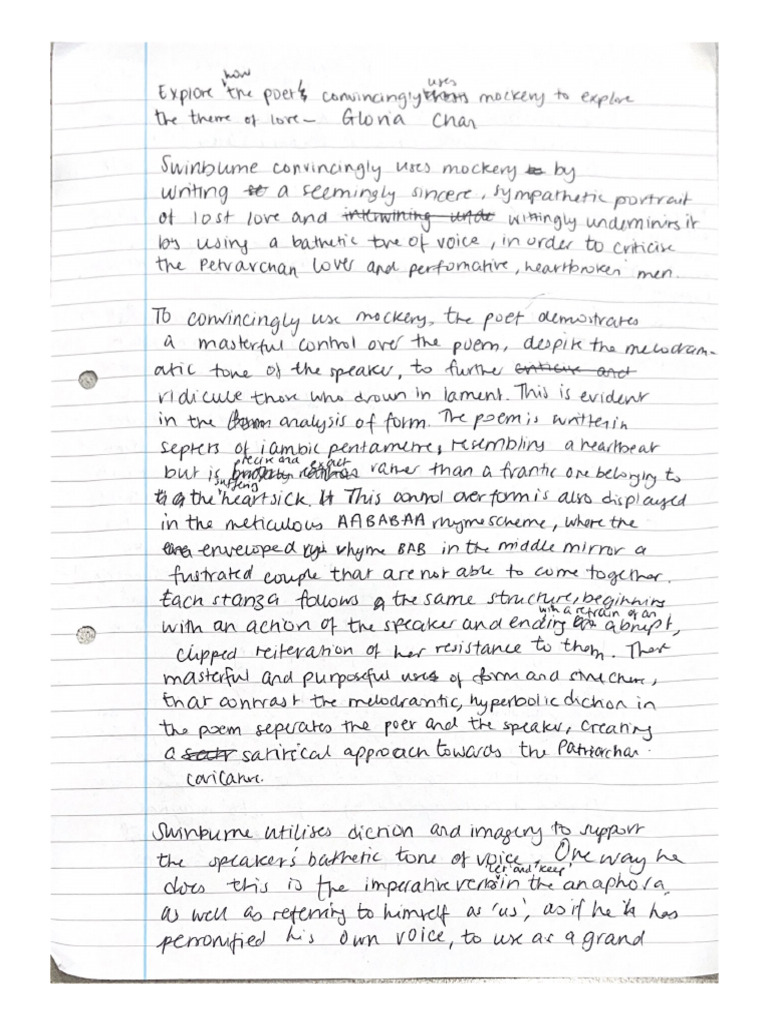 Explore how the poet's convincingly uses mockery to explore
the theme of love - Gloria Chan
Swinburne convincingly uses mockery by
writing a seemingly sincere, sympathetic portrait
of lost love and wittingly undermines it
by using a bathetic tone of voice, in order to criticise
the Petrarchan lover and perfomative, heartbroken men.
To convincingly use mockery, the poet demostrates
a masterful control over the poem, despite the melodram-
atic tone of the speaker, to further
ridicule those who drown in lament. This is evident
in the analysis of form. The poem is written in
septets of iambic pentametre, resembling a heartbeat
but is precise and exact rather than a frantic one belonging to
the suffering heartsick. This control over form is also displayed
in the meticulous AABABAA rhyme scheme, where the
enveloped rhyme BAB in the middle mirror a
fustrated couple that are not able to come together.
Each stanza follows the same structure, beginning
with an action of the speaker and ending with a refrain of an abrupt,
clipped reiteration of her resistance to them. These
masterful and purposeful uses of form and structure,
that contrast the melodramtic, hyperbolic diction in
the poem seperates the poet and the speaker, creating
a satirical approach towards the Patriarchan
caricature.
Swinburne utilises diction and imagery to support
the speaker's bathetic tone of voice. One way he
does this is the imperative verbs 'let' and 'keep' in the anaphora,
as well as referring to himself as 'us', as if he has
personified his own voice, to use as a grand